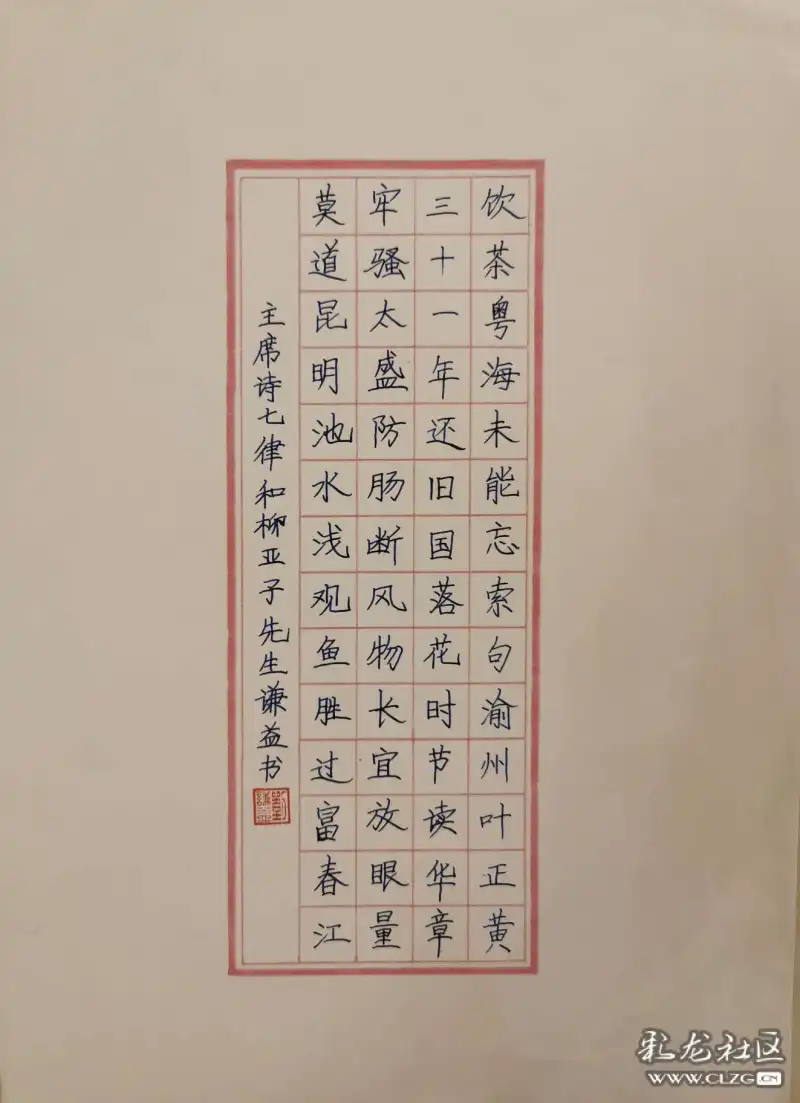 饮茶粤海未能忘索句渝州叶正黄
三十一年还旧国落花时节读华章
牢骚太盛防肠断风物长宜放眼量
莫道昆明池水浅观鱼胜过富春江
主席诗七律和柳亚子先生谦益书
刘谦益
彩龙社区
WWW.CLZG.CN